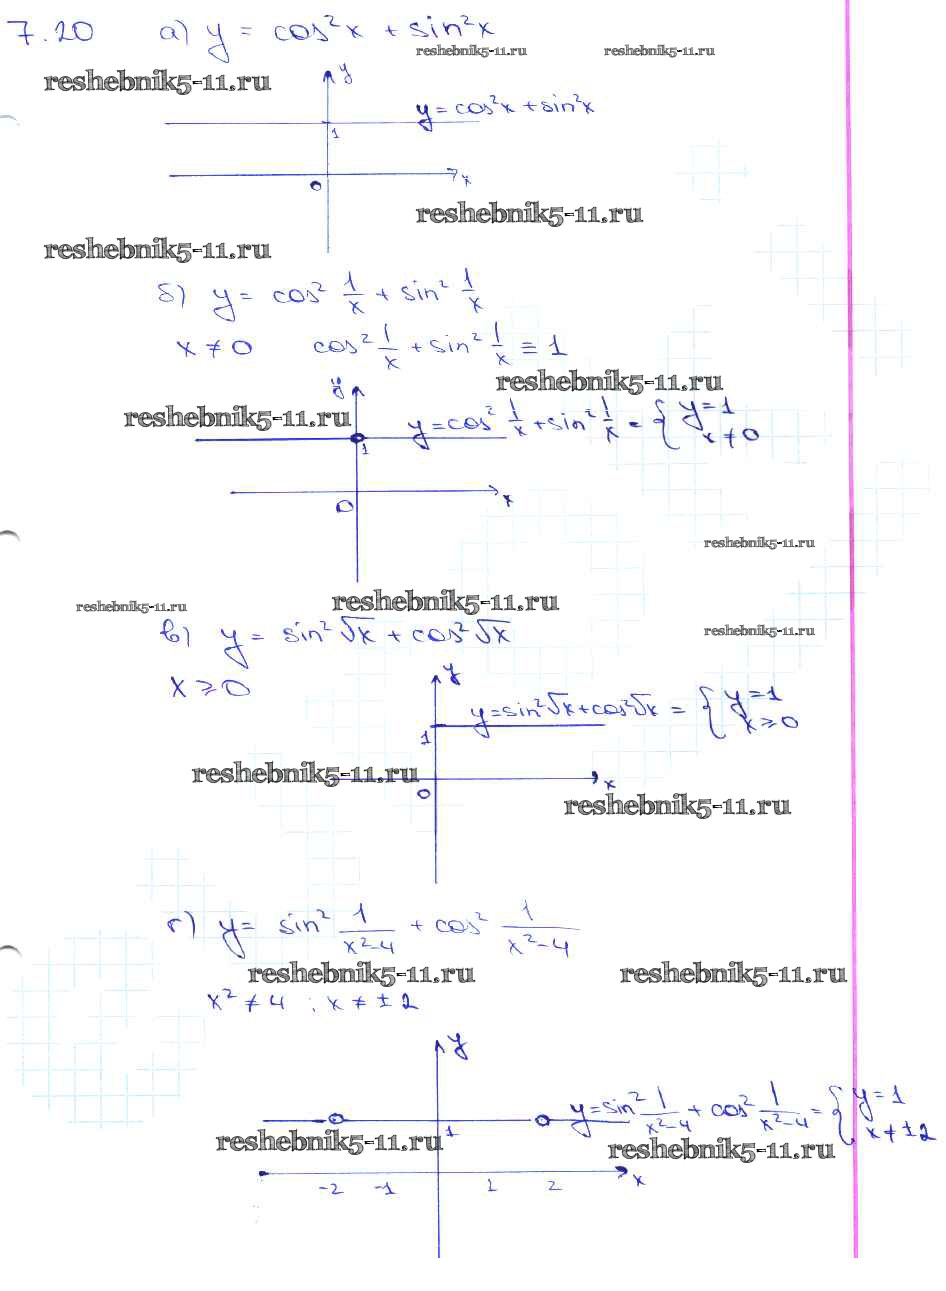 7.20 а) y = cos²x + sin²x
reshebnik5-11.ru reshebnik5-11.ru
reshebnik5-11.ru
y
y = cos²x + sin²x
1
x
0
reshebnik5-11.ru
reshebnik5-11.ru
б) y = cos² 1/x + sin² 1/x
x ≠ 0 cos² 1/x + sin² 1/x ≡ 1
reshebnik5-11.ru
y
reshebnik5-11.ru
y = cos² 1/x + sin² 1/x = { y = 1
x ≠ 0
1
x
0
reshebnik5-11.ru
reshebnik5-11.ru reshebnik5-11.ru
reshebnik5-11.ru
в) y = sin²√x + cos²√x
x ⩾ 0
y
y = sin²√x + cos²√x = { y = 1
x ⩾ 0
1
reshebnik5-11.ru
x
0
reshebnik5-11.ru
г) y = sin² 1/(x²-4) + cos² 1/(x²-4)
reshebnik5-11.ru reshebnik5-11.ru
x² ≠ 4 ; x ≠ ±2
y
y = sin² 1/(x²-4) + cos² 1/(x²-4) = { y = 1
x ≠ ±2
1
reshebnik5-11.ru reshebnik5-11.ru
-2 -1 1 2 x